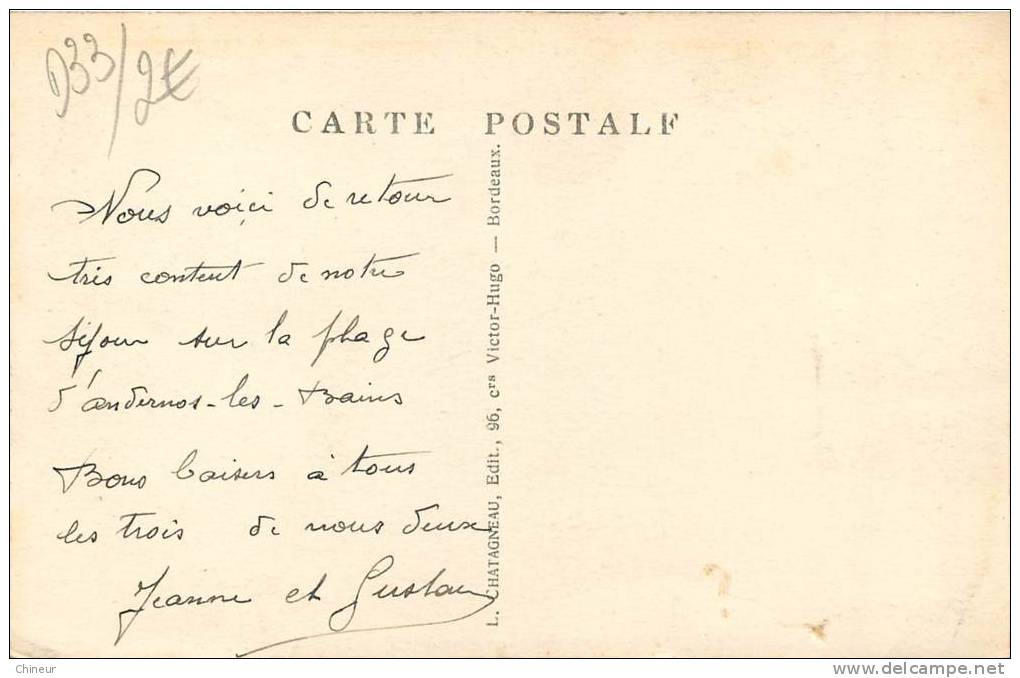 D33/2€
CARTE POSTALE
Nous voici de retour
très content de notre
séjour sur la plage
d'andernos-les-Bains
Bons baisers à tous
les trois de nous deux
Jeanne et Gustave
L. CHATAGNEAU, Edit., 96, crs Victor-Hugo — Bordeaux.
Chineur
www.delcampe.net